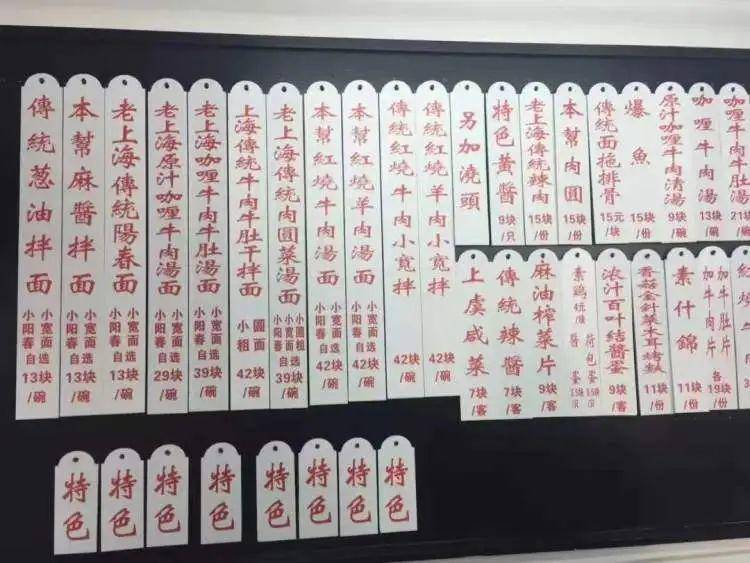 傳統葱油拌面
小阳春
小宽面
自选
13块
/碗
本幫麻醬拌面
小阳春
小宽面
自选
13块
/碗
老上海傳統陽春面
小阳春
小宽面
自选
13块
/碗
老上海原汁咖喱牛肉湯面
小阳春
小宽面
自选
29块
/碗
老上海咖喱牛肉牛肚湯面
小阳春
小宽面
自选
39块
/碗
上海傳統牛肉牛肚干拌面
小粗
圆面
42块
/碗
老上海傳統肉圓菜湯面
小阳春
小宽面
圆粗
自选
39块
/碗
本幫紅燒牛肉湯面
小阳春
小宽面
自选
42块
/碗
本幫紅燒羊肉湯面
小阳春
小宽面
自选
42块
/碗
傳統紅燒牛肉小寬拌
42块
/碗
傳統紅燒羊肉小寬拌
42块
/碗
另加澆頭
特色黄醬
9块
/只
老上海傳統辣肉
15块
/份
本幫肉圓
15块
/份
傳統面拖排骨
15元
/块
爆魚
15块
/份
原汁咖喱牛肉清湯
9块
/碗
咖喱牛肉湯
13块
/碗
咖喱牛肉牛肚湯
21块
/碗
上虞咸菜
7块
/客
傳統辣醬
7块
/客
麻油榨菜片
9块
/客
素鷄
醬蛋
荷包蛋
浓汁百叶结醬蛋
9块
/客
香菇金針菜木耳烤麩
11块
/份
素什錦
11块
/份
加牛肉片
加牛肚片
各19块
/份
特色
特色
特色
特色
特色
特色
特色
特色